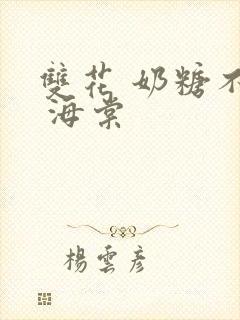 雙花 奶糖不
海棠
楊雲彥